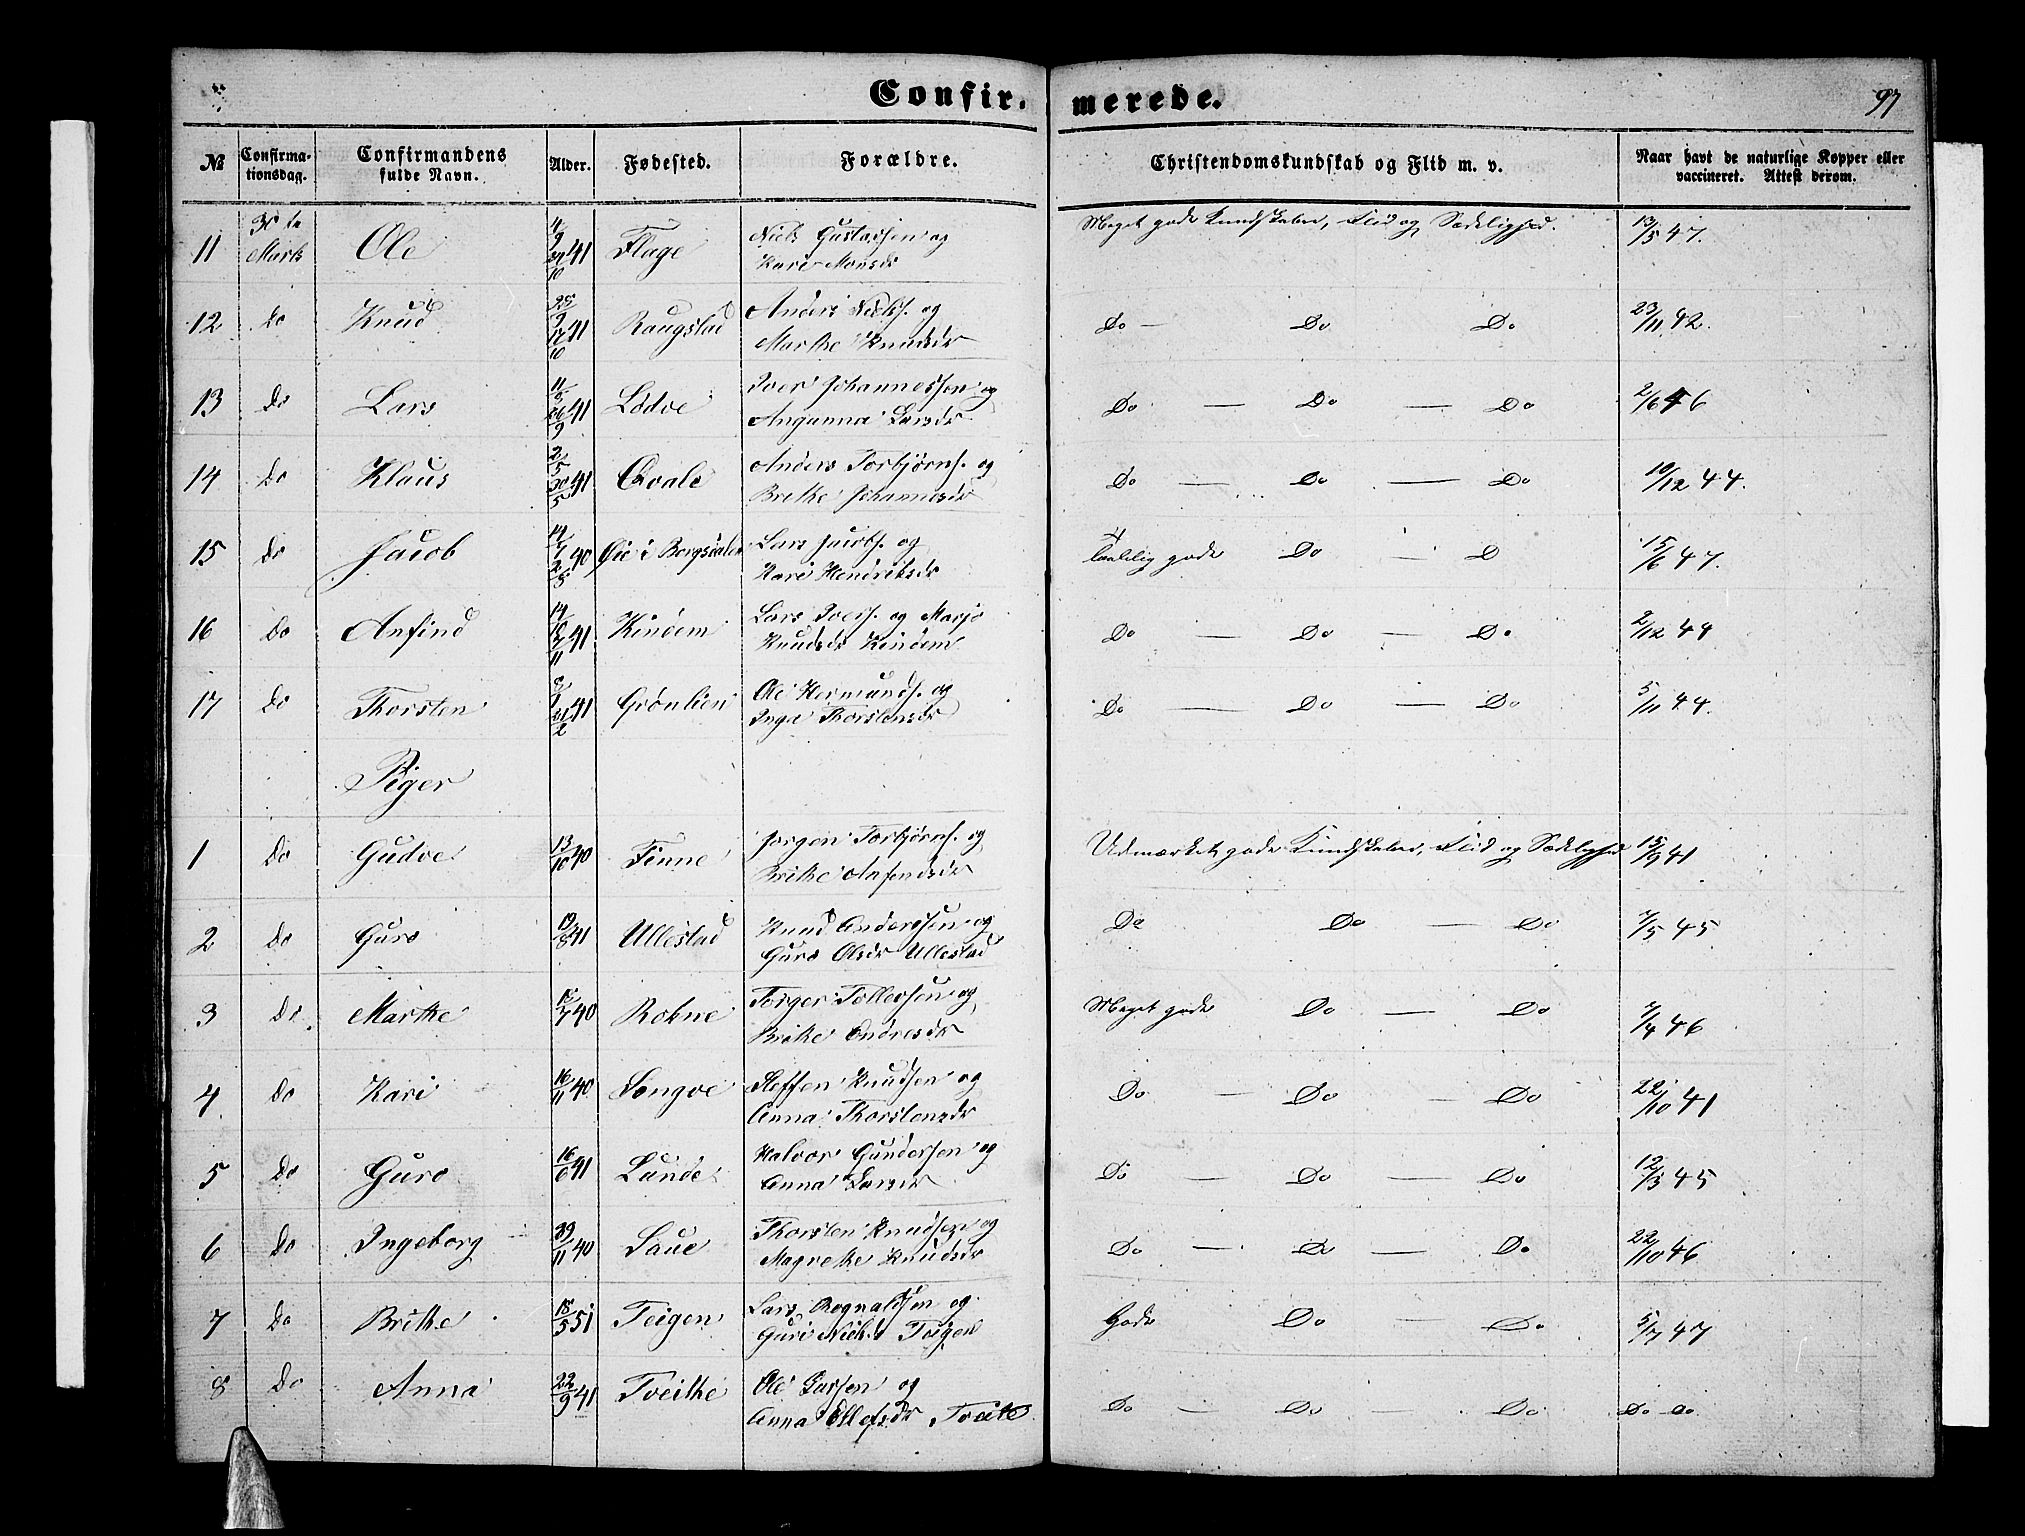 Confirmerede.
97
№ Confirmationsdag. Confirmandens fulde Navn. Alder. Fødested. Forældre. Christendomskundskab og Flid m. v. Naar havt de naturlige Kopper eller vaccineret. Attest derom.
11 Marts Ole 41 Flage Niels Gustafsen og Kari Monsdr Meget gode Kundskaber, Flid og Sædelighed. 13/5 47.
12 Do Knud 41 Raugstad Anders Nielss. og Marthe Knudsdr Do — Do Do 23/11 42.
13 Do Lars 41 Lødve Iver Johannessen og Angunna Larsdr Do — Do — Do 2/6 46
14 Do Klaus 41 Qvale Anders Torbjørns. og Brithe Johannesdr Do — Do — Do 10/12 44.
15 Do Jacob 40 Gie i Bergsdalen Lars Jacobs. og Kari Hendriksdr Temlelig gode Do — D 15/6 47.
16 Do Anfind 41 Kindem Lars Ivers. og Marjo Knudsdr Kindem Do — Do — Do 2/12 44
17 Do Thorsten 41 Grønlien Ole Hermunds. og Inga Thorstensdr Do — Do — Do 5/11 44.
Piger
1 Do Gudve 13/10 40 Finne Jørgen Torbjørns. og Brithe Anfindsdr Udmærket gode Kundskaber, Flid og Sædelighed 15/9 41
2 Do Guro 19/8 41 Ullestad Knud Anderssen og Guro Olsdr Ullestad Do Do — Do 7/5 45
3 Do Marthe 40 Rokne Torger Tollevsen og Brithe Endresdr Meget gode Do — Do 7/4 46
4 Do Kari 16/11 40 Songve Steffen Knudsen og Anna Thorstensdr Do — Do — Do 22/10 41
5 Do Guro 16/6 41 Lunde Halvor Gundersen og Anna Larsdr Do — Do — Do 12/3 45
6 Do Ingeborg 29/11 40 Saue Thorsten Knudsen og Magrethe Knudsdr Do — Do — Do 22/10 46
7 Do Brithe 18/5 51 Teigen Lars Rognaldsen og Guri Nielsd Teigen Gode Do — Do 5/7 47
8 Do Anna 22/9 41 Tveithe Ole Larsen og Anna Ellefsdr Tveite Do — Do — Do Do Do